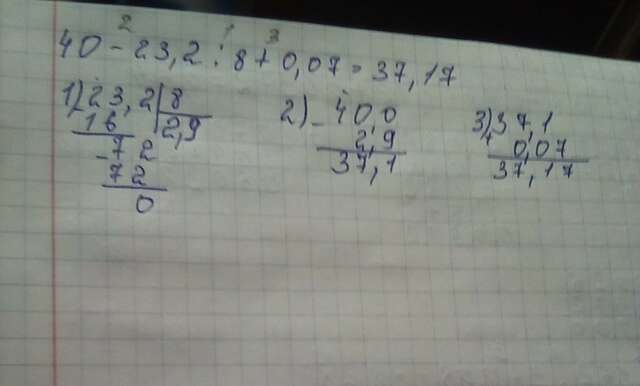 2 1 3
40 - 23,2 : 8 + 0,07 = 37,17
1) 23,2 | 8 2) - 40,0 3) 37,1
16 2,9 2,9 + 0,07
- 72 37,1 37,17
72
0